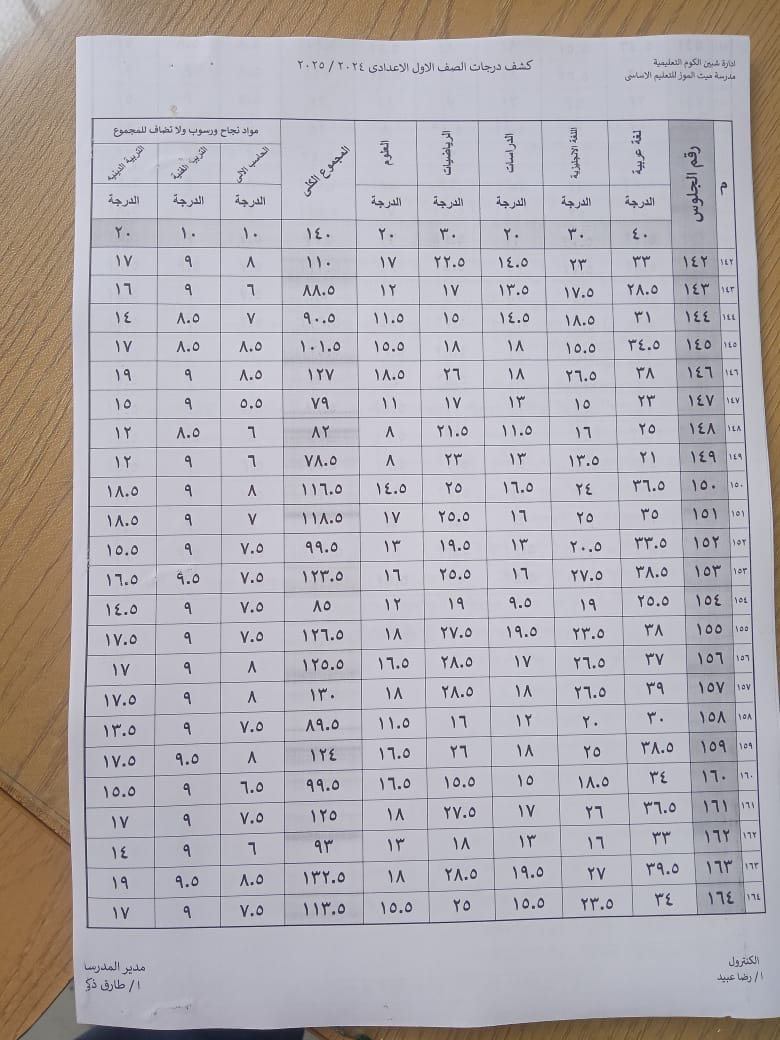 ادارة شبين الكوم التعليمية
مدرسة ميت الموز للتعليم الاساسى
كشف درجات الصف الاول الاعدادى ٢٠٢٤ / ٢٠٢٥
م رقم الجلوس لغة عربية اللغة الانجليزية الدراسات الرياضيات العلوم المجموع الكلى مواد نجاح ورسوب ولا تضاف للمجموع
الحاسب الآلى التربية الفنية التربية الدينية
الدرجة الدرجة الدرجة الدرجة الدرجة الدرجة الدرجة الدرجة
٤٠ ٣٠ ٢٠ ٣٠ ٢٠ ١٤٠ ١٠ ١٠ ٢٠
١٤٢ ١٤٢ ٣٣ ٢٣ ١٤.٥ ٢٢.٥ ١٧ ١١٠ ٨ ٩ ١٧
١٤٣ ١٤٣ ٢٨.٥ ١٧.٥ ١٣.٥ ١٧ ١٢ ٨٨.٥ ٦ ٩ ١٦
١٤٤ ١٤٤ ٣١ ١٨.٥ ١٤.٥ ١٥ ١١.٥ ٩٠.٥ ٧ ٨.٥ ١٤
١٤٥ ١٤٥ ٣٤.٥ ١٥.٥ ١٨ ١٨ ١٥.٥ ١٠١.٥ ٨.٥ ٨.٥ ١٧
١٤٦ ١٤٦ ٣٨ ٢٦.٥ ١٨ ٢٦ ١٨.٥ ١٢٧ ٨.٥ ٩ ١٩
١٤٧ ١٤٧ ٢٣ ١٥ ١٣ ١٧ ١١ ٧٩ ٥.٥ ٩ ١٥
١٤٨ ١٤٨ ٢٥ ١٦ ١١.٥ ٢١.٥ ٨ ٨٢ ٦ ٨.٥ ١٢
١٤٩ ١٤٩ ٢١ ١٣.٥ ١٣ ٢٣ ٨ ٧٨.٥ ٦ ٩ ١٢
١٥٠ ١٥٠ ٣٦.٥ ٢٤ ١٦.٥ ٢٥ ١٤.٥ ١١٦.٥ ٨ ٩ ١٨.٥
١٥١ ١٥١ ٣٥ ٢٥ ١٦ ٢٥.٥ ١٧ ١١٨.٥ ٧ ٩ ١٨.٥
١٥٢ ١٥٢ ٣٣.٥ ٢٠.٥ ١٣ ١٩.٥ ١٣ ٩٩.٥ ٧.٥ ٩ ١٥.٥
١٥٣ ١٥٣ ٣٨.٥ ٢٧.٥ ١٦ ٢٥.٥ ١٦ ١٢٣.٥ ٧.٥ ٩.٥ ١٦.٥
١٥٤ ١٥٤ ٢٥.٥ ١٩ ٩.٥ ١٩ ١٢ ٨٥ ٧.٥ ٩ ١٤.٥
١٥٥ ١٥٥ ٣٨ ٢٣.٥ ١٩.٥ ٢٧.٥ ١٨ ١٢٦.٥ ٧.٥ ٩ ١٧.٥
١٥٦ ١٥٦ ٣٧ ٢٦.٥ ١٧ ٢٨.٥ ١٦.٥ ١٢٥.٥ ٨ ٩ ١٧
١٥٧ ١٥٧ ٣٩ ٢٦.٥ ١٨ ٢٨.٥ ١٨ ١٣٠ ٨ ٩ ١٧.٥
١٥٨ ١٥٨ ٣٠ ٢٠ ١٢ ١٦ ١١.٥ ٨٩.٥ ٧.٥ ٩ ١٣.٥
١٥٩ ١٥٩ ٣٨.٥ ٢٥ ١٨ ٢٦ ١٦.٥ ١٢٤ ٨ ٩.٥ ١٧.٥
١٦٠ ١٦٠ ٣٤ ١٨.٥ ١٥ ١٥.٥ ١٦.٥ ٩٩.٥ ٦.٥ ٩ ١٥.٥
١٦١ ١٦١ ٣٦.٥ ٢٦ ١٧ ٢٧.٥ ١٨ ١٢٥ ٧.٥ ٩ ١٧
١٦٢ ١٦٢ ٣٣ ١٦ ١٣ ١٨ ١٣ ٩٣ ٦ ٩ ١٤
١٦٣ ١٦٣ ٣٩.٥ ٢٧ ١٩.٥ ٢٨.٥ ١٨ ١٣٢.٥ ٨.٥ ٩.٥ ١٩
١٦٤ ١٦٤ ٣٤ ٢٣.٥ ١٥.٥ ٢٥ ١٥.٥ ١١٣.٥ ٧.٥ ٩ ١٧
الكنترول
ا/ رضا عبيد
مدير المدرسا
ا/ طارق ذكي